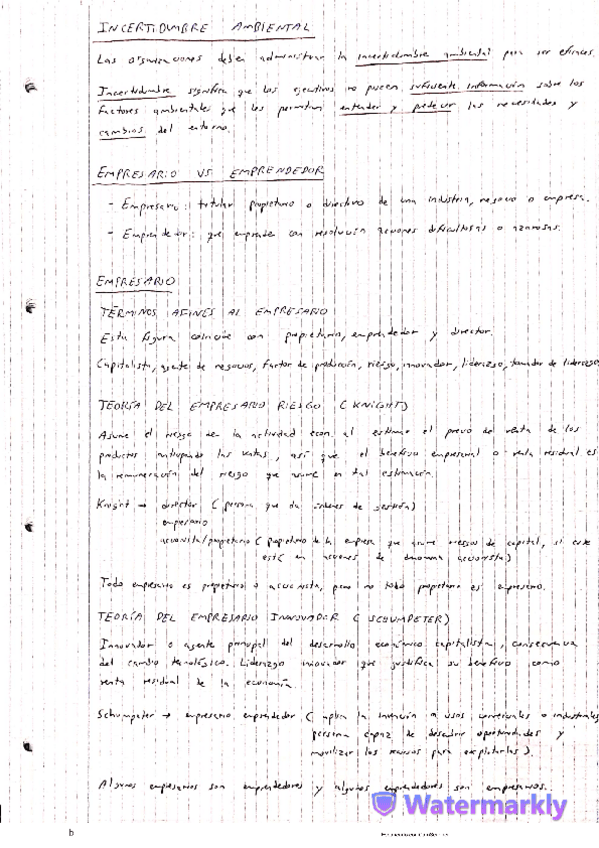 INCERTIDUMBRE AMBIENTAL
Las organizaciones deben administrar la incertidumbre ambiental para ser eficaces.
Incertidumbre significa que los ejecutivos no poseen suficiente información sobre los
factores ambientales que les permitan entender y predecir las necesidades y
cambios del entorno.
EMPRESARIO VS EMPRENDEDOR
- Empresario: titular propietario o directivo de una industria, negocio o empresa.
- Emprendedor: que emprende con resolución acciones dificultosas o azarosas.
EMPRESARIO
TÉRMINOS AFINES AL EMPRESARIO
Esta figura coincide con propietario, emprendedor y director.
Capitalista, agente de negocios, factor de producción, riesgo, innovador, liderazgo, tomador de
TEORÍA DEL EMPRESARIO RIESGO (KNIGHT)
Asume el riesgo de la actividad econ. al estimar el precio de venta de los
productos anticipando las ventas, así que el beneficio empresarial o renta residual es
la remuneración del riesgo que asume en tal estimación.
Knight → director (persona que da órdenes de gestión)
empresario
accionista/propietario (propietario de la empresa que asume riesgos de capital, si este
está en acciones se denomina accionista)
Todo empresario es propietario o accionista, pero no todo propietario es empresario.
TEORÍA DEL EMPRESARIO INNOVADOR (SCHUMPETER)
Innovador o agente principal del desarrollo económico capitalista, consecuencia
del cambio tecnológico. Liderazgo innovador que justifica su beneficio como
renta residual de la economía.
Schumpeter → empresario emprendedor (aplica la invención a usos comerciales o industriales
persona capaz de descubrir oportunidades y
movilizar los recursos para explotarlas).
Algunos empresarios son emprendedores y algunos emprendedores son empresarios.
Watermarkly